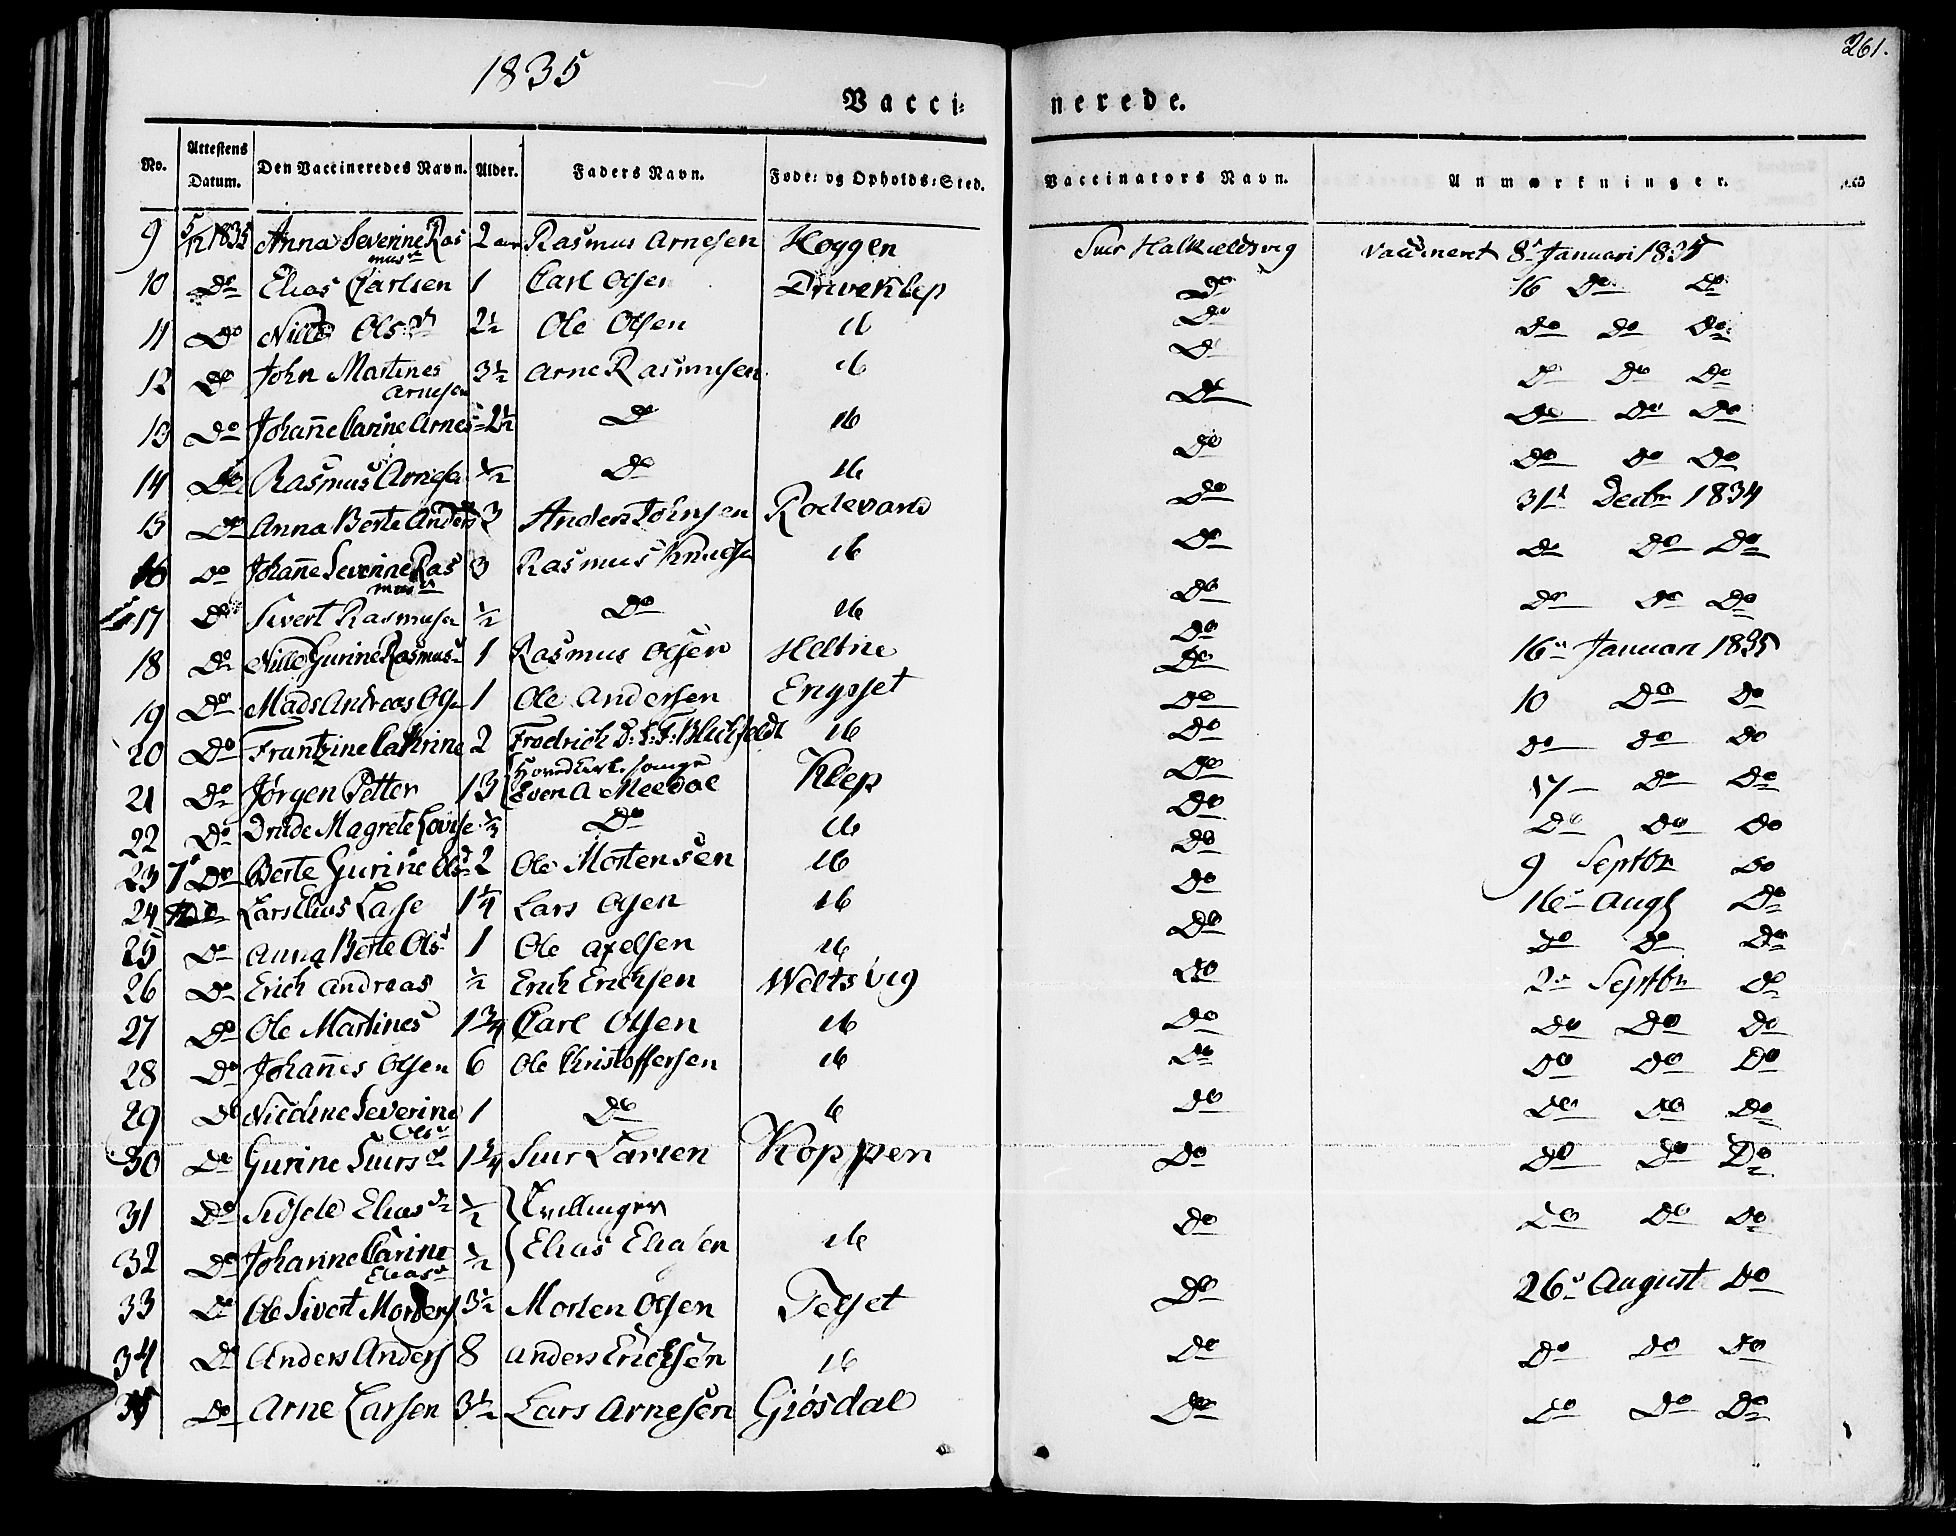 1835
261.
Vacci=
nerede.
No. Attestens Datum. Den Vaccineredes Navn. Alder. Faders Navn. Føde= og Opholds=Sted. Vaccinators Navn. Anmærkninger.
9 5/12 1835 Anna Severine Rasmusd 2 aar Rasmus Arnesen Hoggen Siur Halkieldsvig Vaccineret 8d Januari 1835
10 Do Elias Carlsen 1 Carl Olsen Driveklep Do 16 Do Do
11 Do Nille Olsd 2½ Ole Olsen ib Do Do Do Do
12 Do John Martines Arnesen 3½ Arne Rasmusen ib Do Do Do Do
13 Do Johanne Carine Arnesd 2½ Do ib Do Do Do Do
14 Do Rasmus Arnesen ½ Do ib Do Do Do Do
15 Do Anna Berte Andersd 3 Anders Johnsen Rodevand Do 31d Decbr 1834
16 Do Johanne Severine Rasmusd 3 Rasmus Knudsen ib Do Do Do Do
17 Do Sivert Rasmusen ½ Do ib Do Do Do Do
18 Do Nille Gurine Rasmusd 1 Rasmus Olsen Heltne Do 16d Januari 1835
19 Do Mads Andreas Olsen 1 Ole Andersen Engeset Do 10 Do Do
20 Do Frantzine Cathrine 2 Fredrich D: S: F: Blichfeldt ib Do Do Do Do
21 Do Jørgen Petter 13 Even A Meedal Klep Do 17 Do Do
22 Do Drude Magrete Lovise Do ib Do Do Do Do
23 7d Do Berte Gurine Olsd 2 Ole Mortensen ib Do 9 Septbr Do
24 Do Lars Elias Larse 1¼ Lars Olsen ib Do 16d Aug Do
25 Do Anna Berte Olsd 1 Ole Axelsen ib Do Do Do Do
26 Do Erich Andreas ½ Erich Erichsen Weltsvig Do 2d Septbr Do
27 Do Ole Martines 1¾ Carl Olsen ib Do Do Do Do
28 Do Johannes Olsen 6 Ole Christoffersen ib Do Do Do Do
29 Do Nicoline Severine Olsd 1 Do ib Do Do Do Do
30 Do Gurine Siursd 1¾ Siur Larsen Koppen Do Do Do Do
31 Do Sidsele Eliasd ½ Tvillinger Do Do Do Do
32 Do Johanne Carine Eliasd ½ Elias Eliasen ib
33 Do Ole Sivert Mortens 3½ Morten Olsen Telset Do 26d August Do
34 Do Anders Anders 8 Anders Erichsen ib Do Do Do Do
35 Do Arne Larsen 3½ Lars Arnesen Giøsdal Do Do Do Do